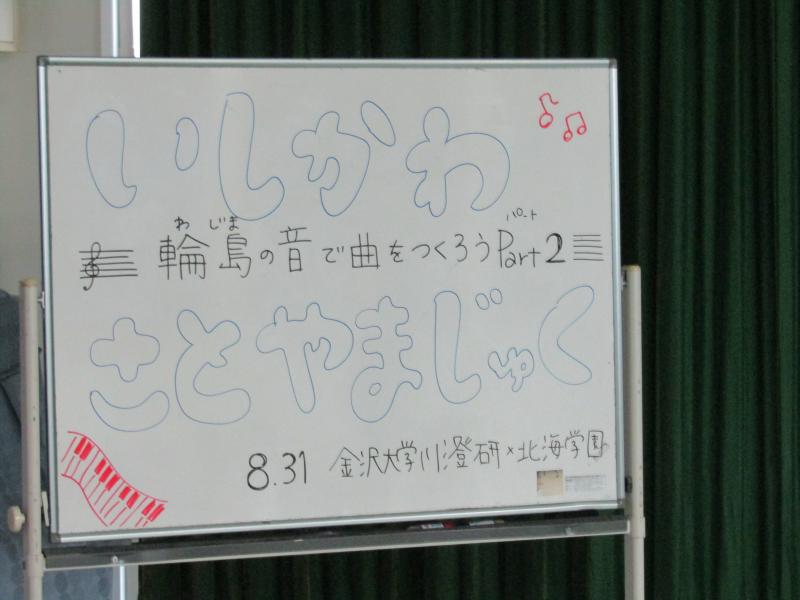 いしかわ
わじま パート
輪島の音で曲をつくろうPart2
さとやまじゅく
8.31 金沢大学川澄研×北海学園